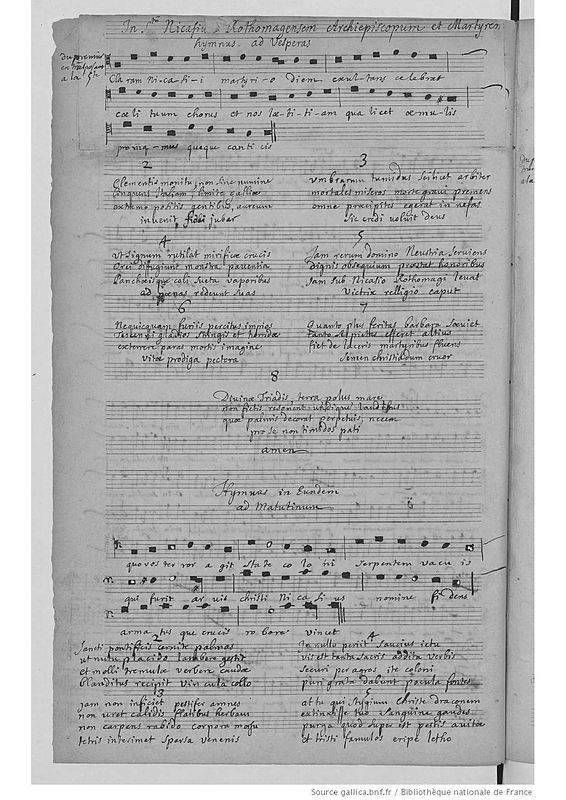 In Sti Nicasii Rothomagensem Archiepiscopum et Martyrem
hymnus ad Vesperas
du premier
en transposant
a la
Claram ni-ca-si-i martyri-o diem exultans celebrat
cœli tuum chorus et nos lœ-ti-ti-am qua licet œmu-lis
promamus quoque canticis
2
Clementis monitu, non sine numine
linquens Italiam, limite galliæ
extremo positis gentibus, aureum
invenit fidei jubar
3
umbrarum tumidus scilicet arbiter
mortales miseros morte gravi premens
omne præcipites egerat in nefas
sic credi voluit deus
4
ut signum rutilat mirificæ crucis
Orci diffugiunt monstra paventia
Panthæisque coli sueta vaporibus
ad pœnas redeunt suas
5
Jam rerum domino Neustria serviens
Dignis obsequium præstat honoribus
Jam sub Nicasio Rothomagi levat
Victrix relligio caput
6
Nequicquam furiis percitus impiis
gladios stringis et horridæ
exterrere paras mortis imagine
vitæ prodiga pectora
7
Quanto plus feritas barbara sæviet
tanto se pietas efferet altius
fiet de laceris martyribus fluens
Semen christiadum cruor
8
Divinæ Triadis, terra polus mare
non fictis resonent undique laudibus
quæ palmis decorat perpetuis, necem
pro se non timidos pati
amen
Hymnus in Eundem
ad Matutinum
quo vos ter ror a git sta te co lo ni serpentem vacuis
qui furit ar vis christi Ni ca si us nomine fi dens
arma tus que crucis ro bore vincet
2
Sancti pontificis cernite palmas
ut nutu placido lambere gestit
et molli tremulæ verbere caudæ
blanditus recipit vincula collo
4
In nullo periit saucius ictu
vis est tanta sacris addita verbis
securi per agros ite coloni
puri grata dabunt pocula fontes
3
Jam non inficiet pestifer amnes
non uret calidis flatibus herbam
non carpens rabido corpora morsu
tetris interimet sparsa venenis
5
at tu qui stygium christe draconem
extinxisse tuo sanguine gaudes
purga quod super est pestis avitæ
et tristi famulos eripe letho
Source gallica.bnf.fr / Bibliothèque nationale de France